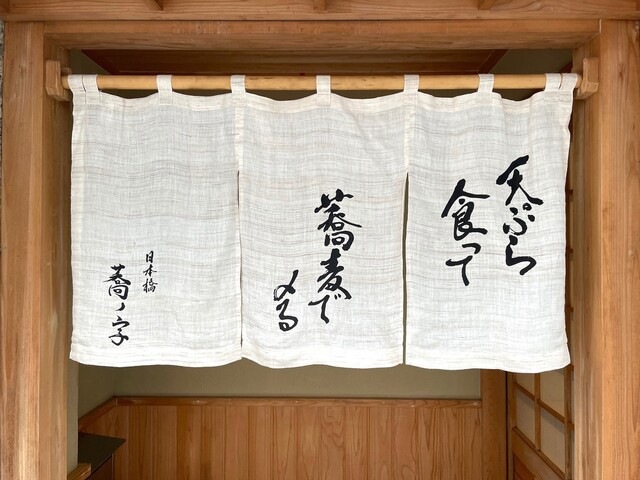 天ぷら
食って
蕎麦で
〆る
日本橋
蕎ノ字